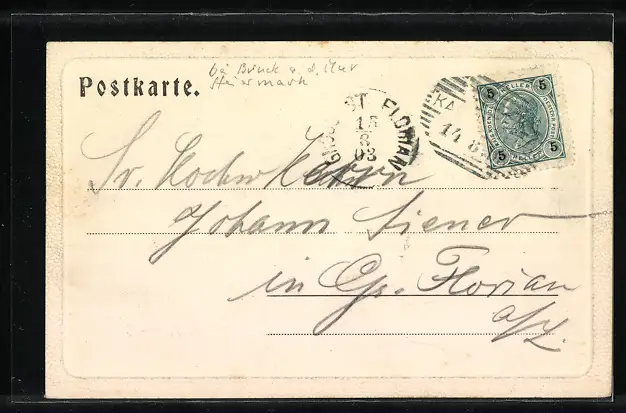 bei Bruck a. d. Mur
Steiermark
Postkarte.
ST. FLORIAN
15
8
03
KA
14 8
5 HELLER 5
5 5
Sr. Hochw Herrn
Johann
in Gr. Florian
a/L.